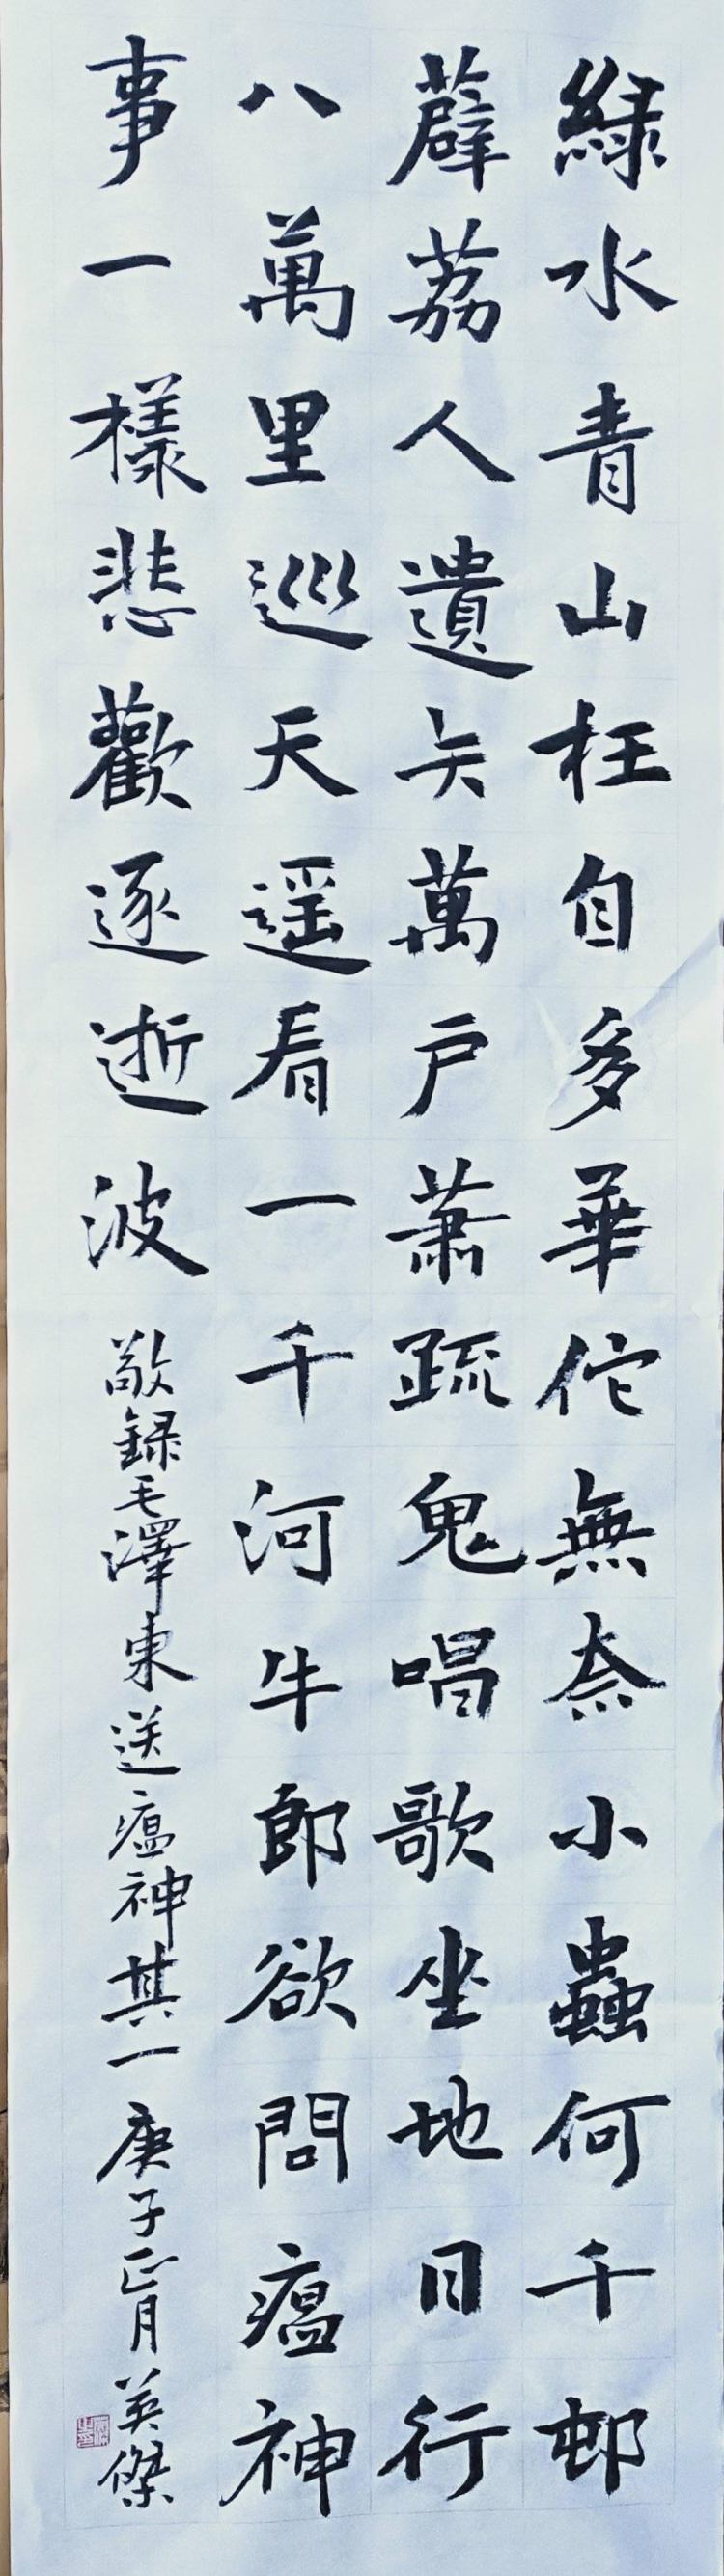 綠水青山枉自多華佗無奈小蟲何千邨
薜荔人遺矢萬戶蕭疏鬼唱歌坐地日行
八萬里巡天遥看一千河牛郎欲問瘟神
事一樣悲歡逐逝波 敬録毛澤東送瘟神其一庚子正月英傑